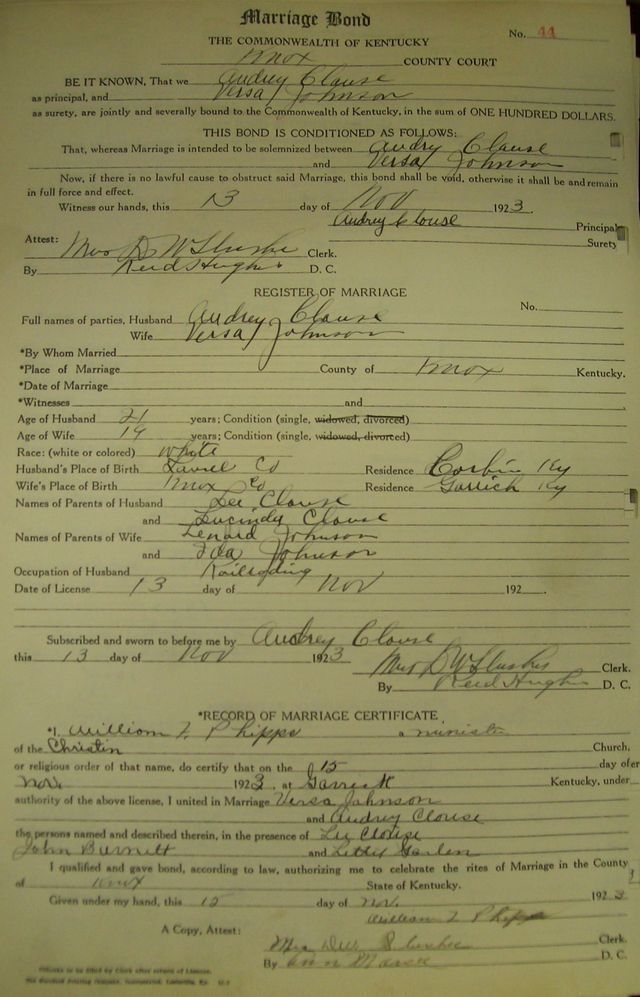 Marriage Bond
No. 44
THE COMMONWEALTH OF KENTUCKY
Knox COUNTY COURT
BE IT KNOWN, That we Audrey Clouse
as principal, and Versa Johnson
as surety, are jointly and severally bound to the Commonwealth of Kentucky, in the sum of ONE HUNDRED DOLLARS.
THIS BOND IS CONDITIONED AS FOLLOWS:
That, whereas Marriage is intended to be solemnized between Audry Clouse
and Versa Johnson
Now, if there is no lawful cause to obstruct said Marriage, this bond shall be void, otherwise it shall be and remain
in full force and effect.
Witness our hands, this 13 day of Nov 1923.
Audrey Clouse Principal
Surety
Attest:
Mrs D W Slusher Clerk.
By Reid Hughes D. C.
REGISTER OF MARRIAGE
No.
Full names of parties, Husband Audrey Clouse
Wife Versa Johnson
*By Whom Married
*Place of Marriage County of Knox Kentucky.
*Date of Marriage
*Witnesses and
Age of Husband 21 years; Condition (single, widowed, divorced)
Age of Wife 19 years; Condition (single, widowed, divorced)
Race: (white or colored) white
Husband's Place of Birth Laurel Co Residence Corbin Ky
Wife's Place of Birth Knox Co Residence Ky
Names of Parents of Husband Lee Clouse
and Lucindy Clouse
Names of Parents of Wife Lenard Johnson
and Ida Johnson
Occupation of Husband Railroading
Date of License 13 day of Nov 192
Subscribed and sworn to before me by Audrey Clouse
this 13 day of Nov 1923
Mrs D W Slusher Clerk.
By Reid Hughes D. C.
*RECORD OF MARRIAGE CERTIFICATE
*I, William T. Phipps a minister
of the Christin Church,
or religious order of that name, do certify that on the 15 day of
Nov. 1923, at Kentucky, under
authority of the above license, I united in Marriage Versa Johnson
and Audrey Clouse
the persons named and described therein, in the presence of Lee Clouse
John Burnett and Letty
I qualified and gave bond, according to law, authorizing me to celebrate the rites of Marriage in the County
of Knox State of Kentucky.
Given under my hand, this 15 day of Nov. 1923
William T Phipps
A Copy, Attest:
Mrs D W Slusher Clerk.
By D. C.